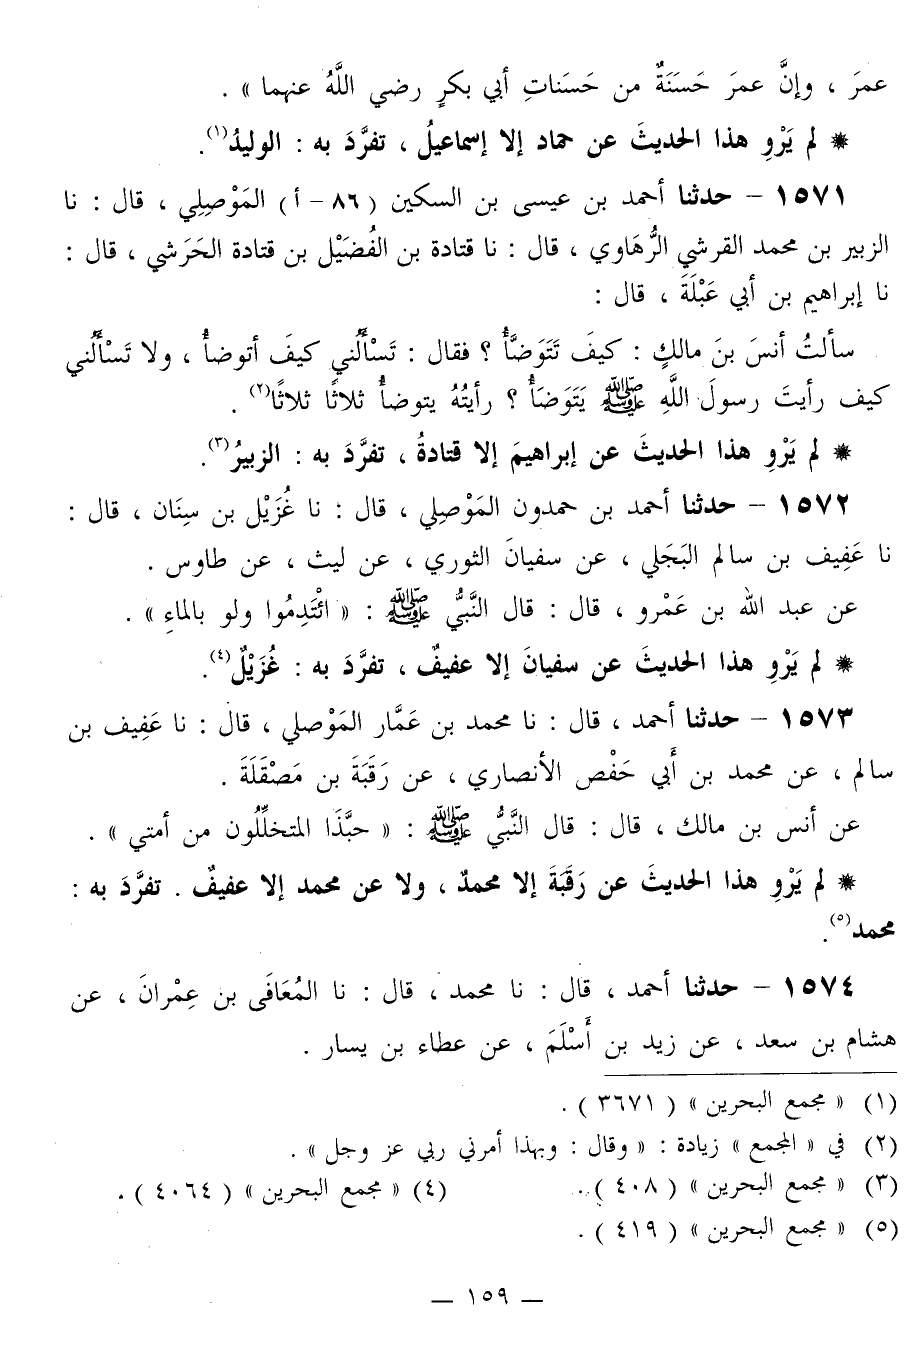 عمرَ ، وإنَّ عمرَ حَسَنَةٌ من حَسَناتِ أبي بكرٍ رضي اللَّهُ عنهما » .
* لم يَرْوِ هذا الحديثَ عن حماد إلا إسماعيلُ ، تفرَّدَ به : الوليدُ(١).
١٥٧١ – حدثنا أحمد بن عيسى بن السكين ( ٨٦ – أ ) المَوْصِلِي ، قال : نا
الزبير بن محمد القرشي الرُّهَاوي ، قال : نا قتادة بن الفُضَيْل بن قتادة الحَرَشي ، قال :
نا إبراهيم بن أبي عَبْلَةَ ، قال :
سألتُ أنسَ بنَ مالكٍ : كيفَ تَتَوَضَّأُ ؟ فقال : تَسْأَلُني كيفَ أتوضأُ ، ولا تَسْأَلُني
كيف رأيتَ رسولَ اللَّهِ ﷺ يَتَوَضَأُ ؟ رأيتُهُ يتوضأُ ثلاثًا ثلاثًا(٢) .
* لم يَرْوِ هذا الحديثَ عن إبراهيمَ إلا قتادةُ ، تفرَّدَ به : الزبيرُ(٣).
١٥٧٢ – حدثنا أحمد بن حمدون المَوْصِلي ، قال : نا غُزَيْل بن سِنَان ، قال :
نا عَفِيف بن سالم البَجَلي ، عن سفيانَ الثوري ، عن ليث ، عن طاوس .
عن عبد الله بن عَمْرو ، قال : قال النَّبيُّ ﷺ : « ائْتَدِمُوا ولو بالماءِ » .
* لم يَرْوِ هذا الحديثَ عن سفيانَ إلا عفيفٌ ، تفرَّدَ به : غُزَيْلٌ(٤).
١٥٧٣ – حدثنا أحمد ، قال : نا محمد بن عَمَّار المَوْصلي ، قال : نا عَفِيف بن
سالم ، عن محمد بن أَبي حَفْص الأنصاري ، عن رَقَبَةَ بن مَصْقَلَةَ .
عن أنس بن مالك ، قال : قال النَّبيُّ ﷺ : « حبَّذَا المتخلِّلُون من أمتي » .
* لم يَرْوِ هذا الحديثَ عن رَقَبَةَ إلا محمدٌ ، ولا عن محمد إلا عفيفٌ . تفرَّدَ به :
محمد(٥).
١٥٧٤ – حدثنا أحمد ، قال : نا محمد ، قال : نا المُعَافَى بن عِمْرانَ ، عن
هشام بن سعد ، عن زيد بن أَسْلَمَ ، عن عطاء بن يسار .
(١) « مجمع البحرين » ( ٣٦٧١ ) .
(٢) في « المجمع » زيادة : « وقال : وبهذا أمرني ربي عز وجل » .
(٣) « مجمع البحرين » ( ٤٠٨ ) . (٤) « مجمع البحرين » ( ٤٠٦٤ ) .
(٥) « مجمع البحرين » ( ٤١٩ ) .
— ١٥٩ —